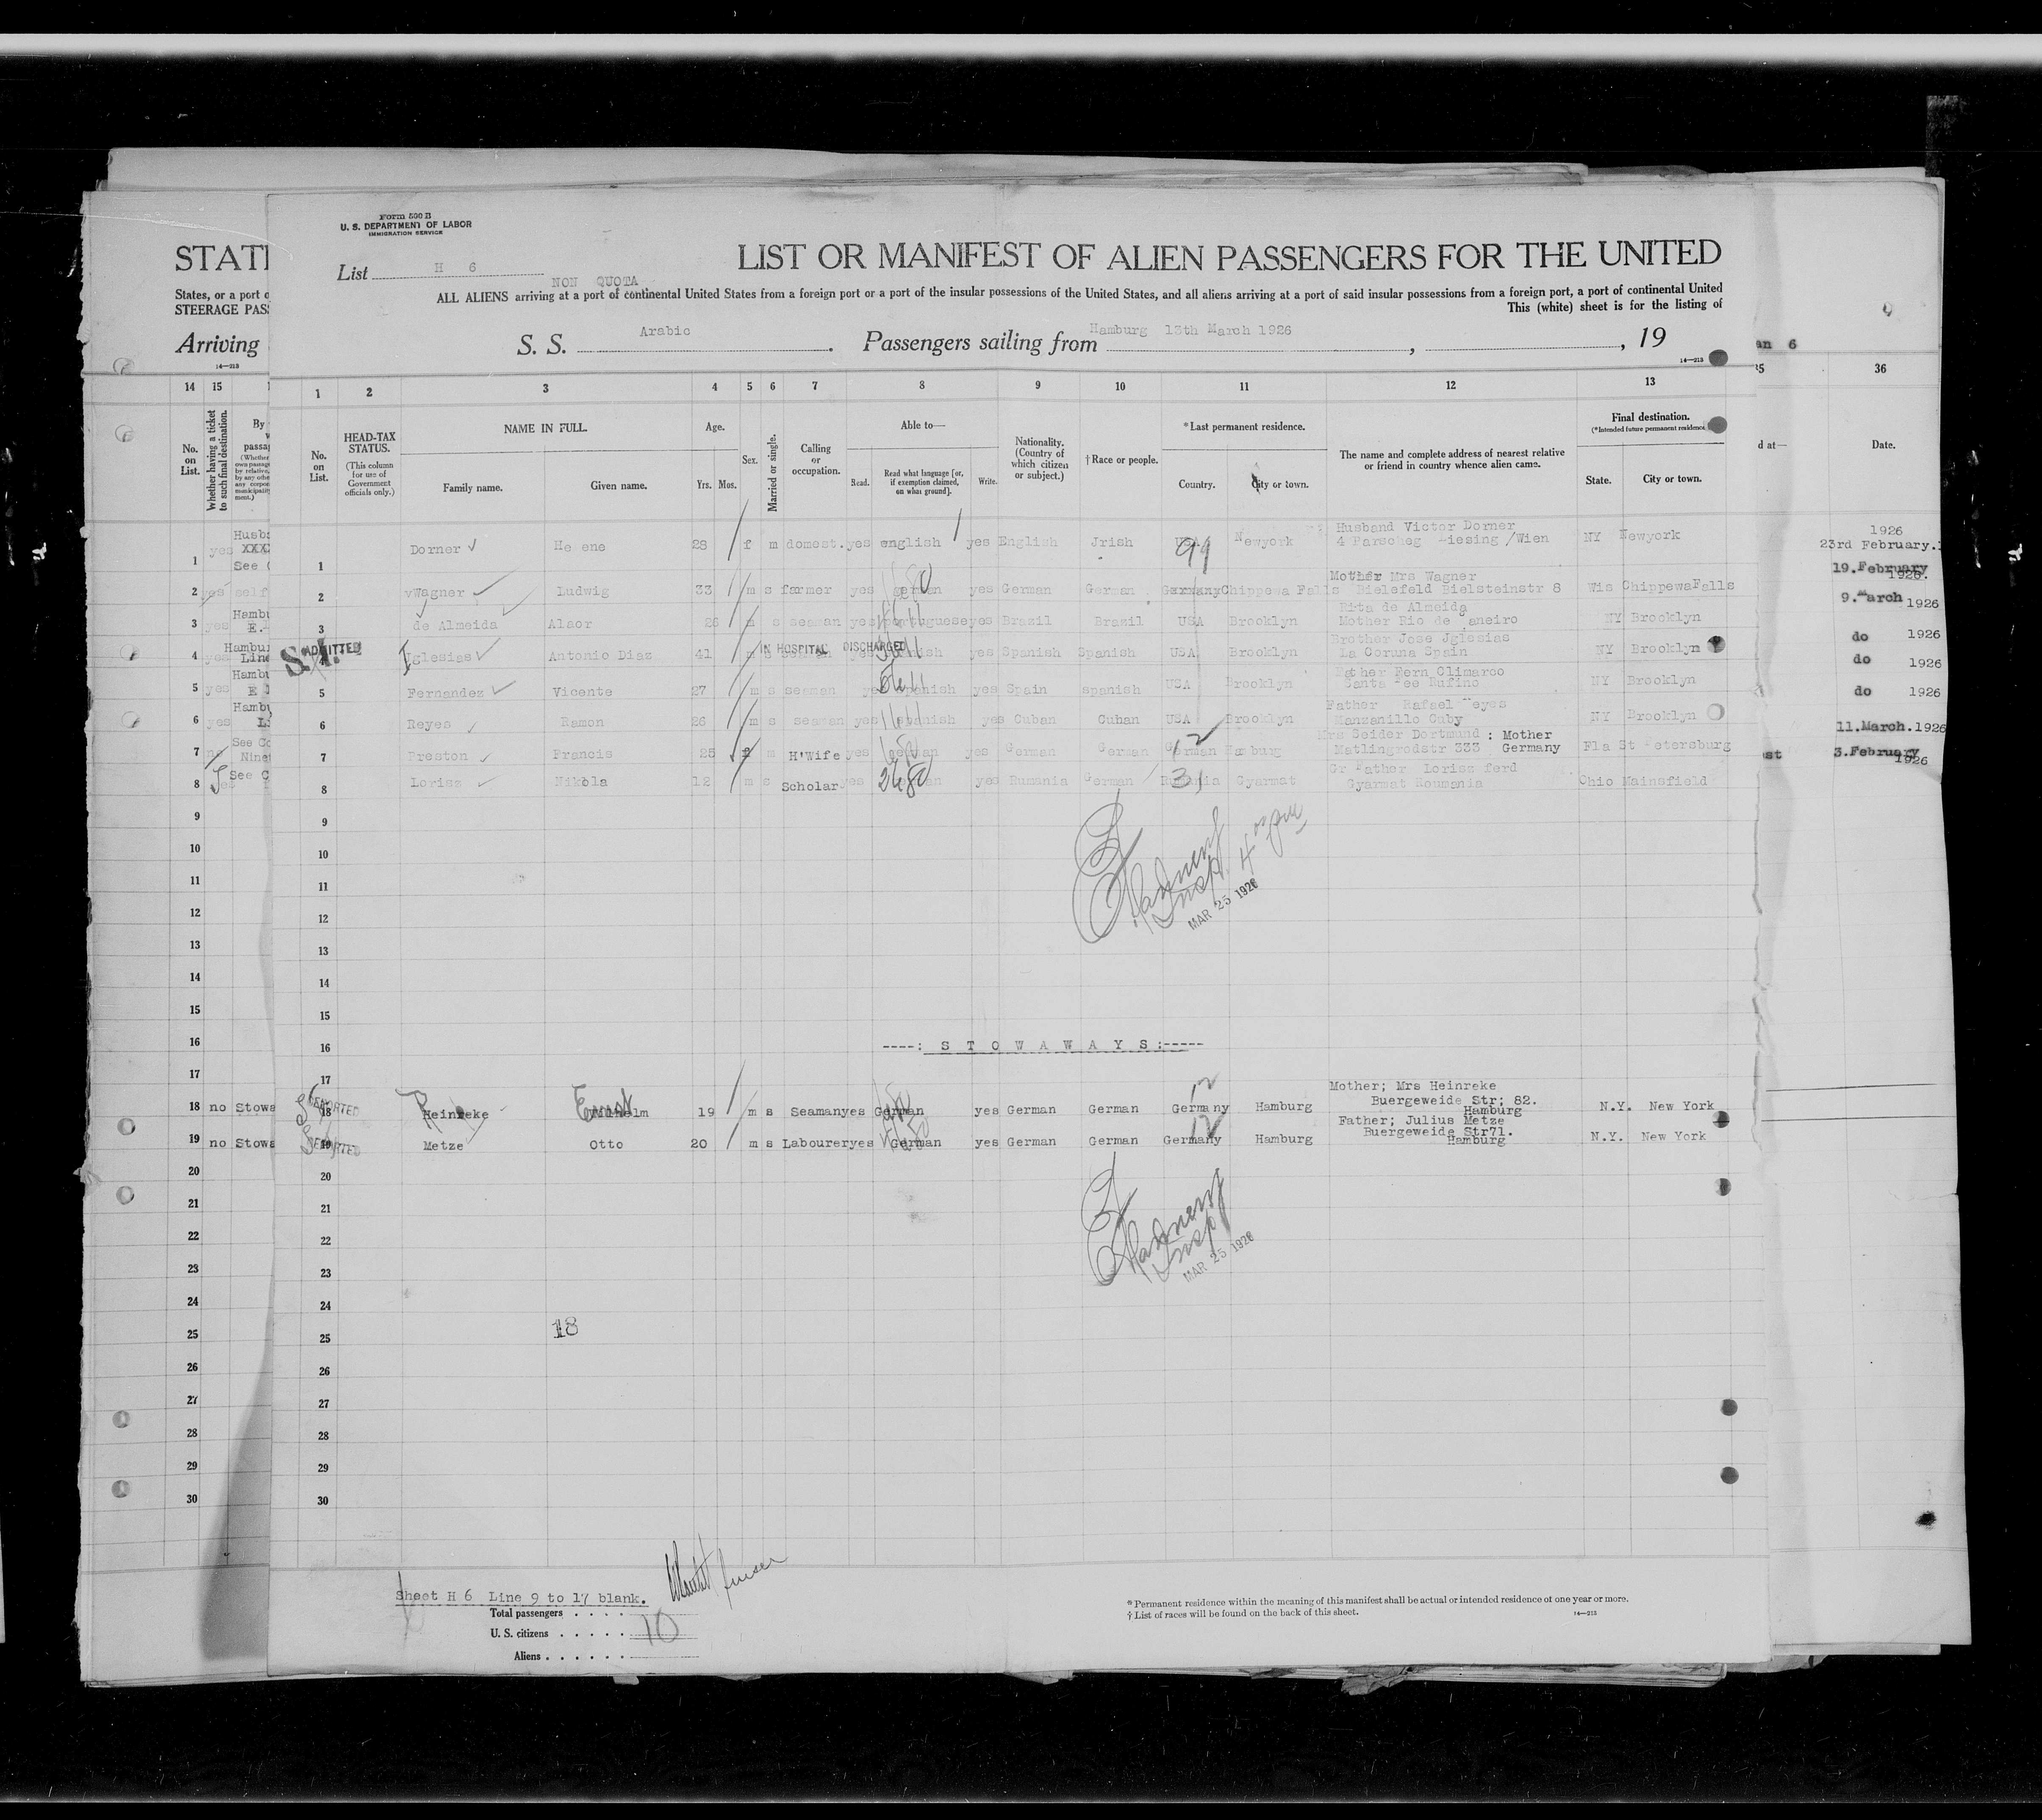 Form 500 B
U. S. DEPARTMENT OF LABOR
IMMIGRATION SERVICE
STATE
List H 6
NON QUOTA
LIST OR MANIFEST OF ALIEN PASSENGERS FOR THE UNITED
ALL ALIENS arriving at a port of continental United States from a foreign port or a port of the insular possessions of the United States, and all aliens arriving at a port of said insular possessions from a foreign port, a port of continental United
This (white) sheet is for the listing of
States, or a port
STEERAGE PAS
Arriving
S. S. Arabic . Passengers sailing from Hamburg 13th March 1926 , , 19
14—213
14—213
14 15
1 2 3 4 5 6 7 8 9 10 11 12 13
36
No. on List.
Whether having a ticket to such final destination.
By
No. on List.
HEAD-TAX STATUS.
(This column for use of Government officials only.)
NAME IN FULL.
Family name. Given name.
Age.
Yrs. Mos.
Sex.
Married or single.
Calling or occupation.
Able to—
Read. Read what language [or, if exemption claimed, on what ground]. Write.
Nationality. (Country of which citizen or subject.)
†Race or people.
*Last permanent residence.
Country. City or town.
The name and complete address of nearest relative or friend in country whence alien came.
Final destination.
(*Intended future permanent residence.)
State. City or town.
d at—
Date.
1 Dorner 28 f m domest. yes english yes English Jrish USA 99 Newyork Husband Victor Dorner NY Newyork
/Wien
1926
23rd February.
2 Wagner Ludwig 33 m s farmer yes german yes German German Germany Chippewa Falls Mother Mrs Wagner
Bielefeld Bielsteinstr 8 Wis ChippewaFalls
19.February 1926.
3 de Almeida Alaor 26 m s seaman yes portuguese yes Brazil Brazil USA Brooklyn Rita de Almeida
Mother Rio de Janeiro NY Brooklyn
9.March 1926
ADMITTED
4 Iglesias Antonio Diaz 41 m s IN HOSPITAL DISCHARGED yes Spanish Spanish USA Brooklyn Brother Jose Jglesias
La Coruna Spain NY Brooklyn
do 1926
5 Fernandez Vicente 27 m s seaman yes spanish yes Spain spanish USA Brooklyn
NY Brooklyn
do 1926
6 Reyes Ramon 26 m s seaman yes spanish yes Cuban Cuban USA Brooklyn Father Rafael Reyes
Manzanillo Cuby NY Brooklyn
do 1926
7 Preston Francis 25 f m H'Wife yes german yes German German German Hamburg Mrs Seider Dortmund : Mother
Matlingrodstr 333 Germany Fla St Petersburg
11.March.1926
8 Lorisz Nikola 12 m s Scholar yes yes Rumania German 31 Gyarmat Gr Father Lorisz ferd
Gyarmat Roumania Ohio Mainsfield
3.February 1926
9
10
11
12
13
14
15
16
17
Insp.
MAR 25 1926
----: S T O W A W A Y S :-----
18 no Stowa
DEPORTED
18 Heinreke Ernst Wilhelm 19 m s Seaman yes German yes German German Germany 12 Hamburg Mother; Mrs Heinreke
Buergeweide Str; 82.
Hamburg N.Y. New York
19 no Stowa
DEPORTED
19 Metze Otto 20 m s Labourer yes German yes German German Germany 12 Hamburg Father; Julius Metze
Buergeweide Str71.
Hamburg N.Y. New York
20
21
22
23
24
25
26
27
28
29
30
Insp
MAR 25 1926
18
Sheet H 6 Line 9 to 17 blank.
Total passengers . . . .
U. S. citizens . . . . . 10
Aliens . . . . . .
* Permanent residence within the meaning of this manifest shall be actual or intended residence of one year or more.
† List of races will be found on the back of this sheet.
14—213